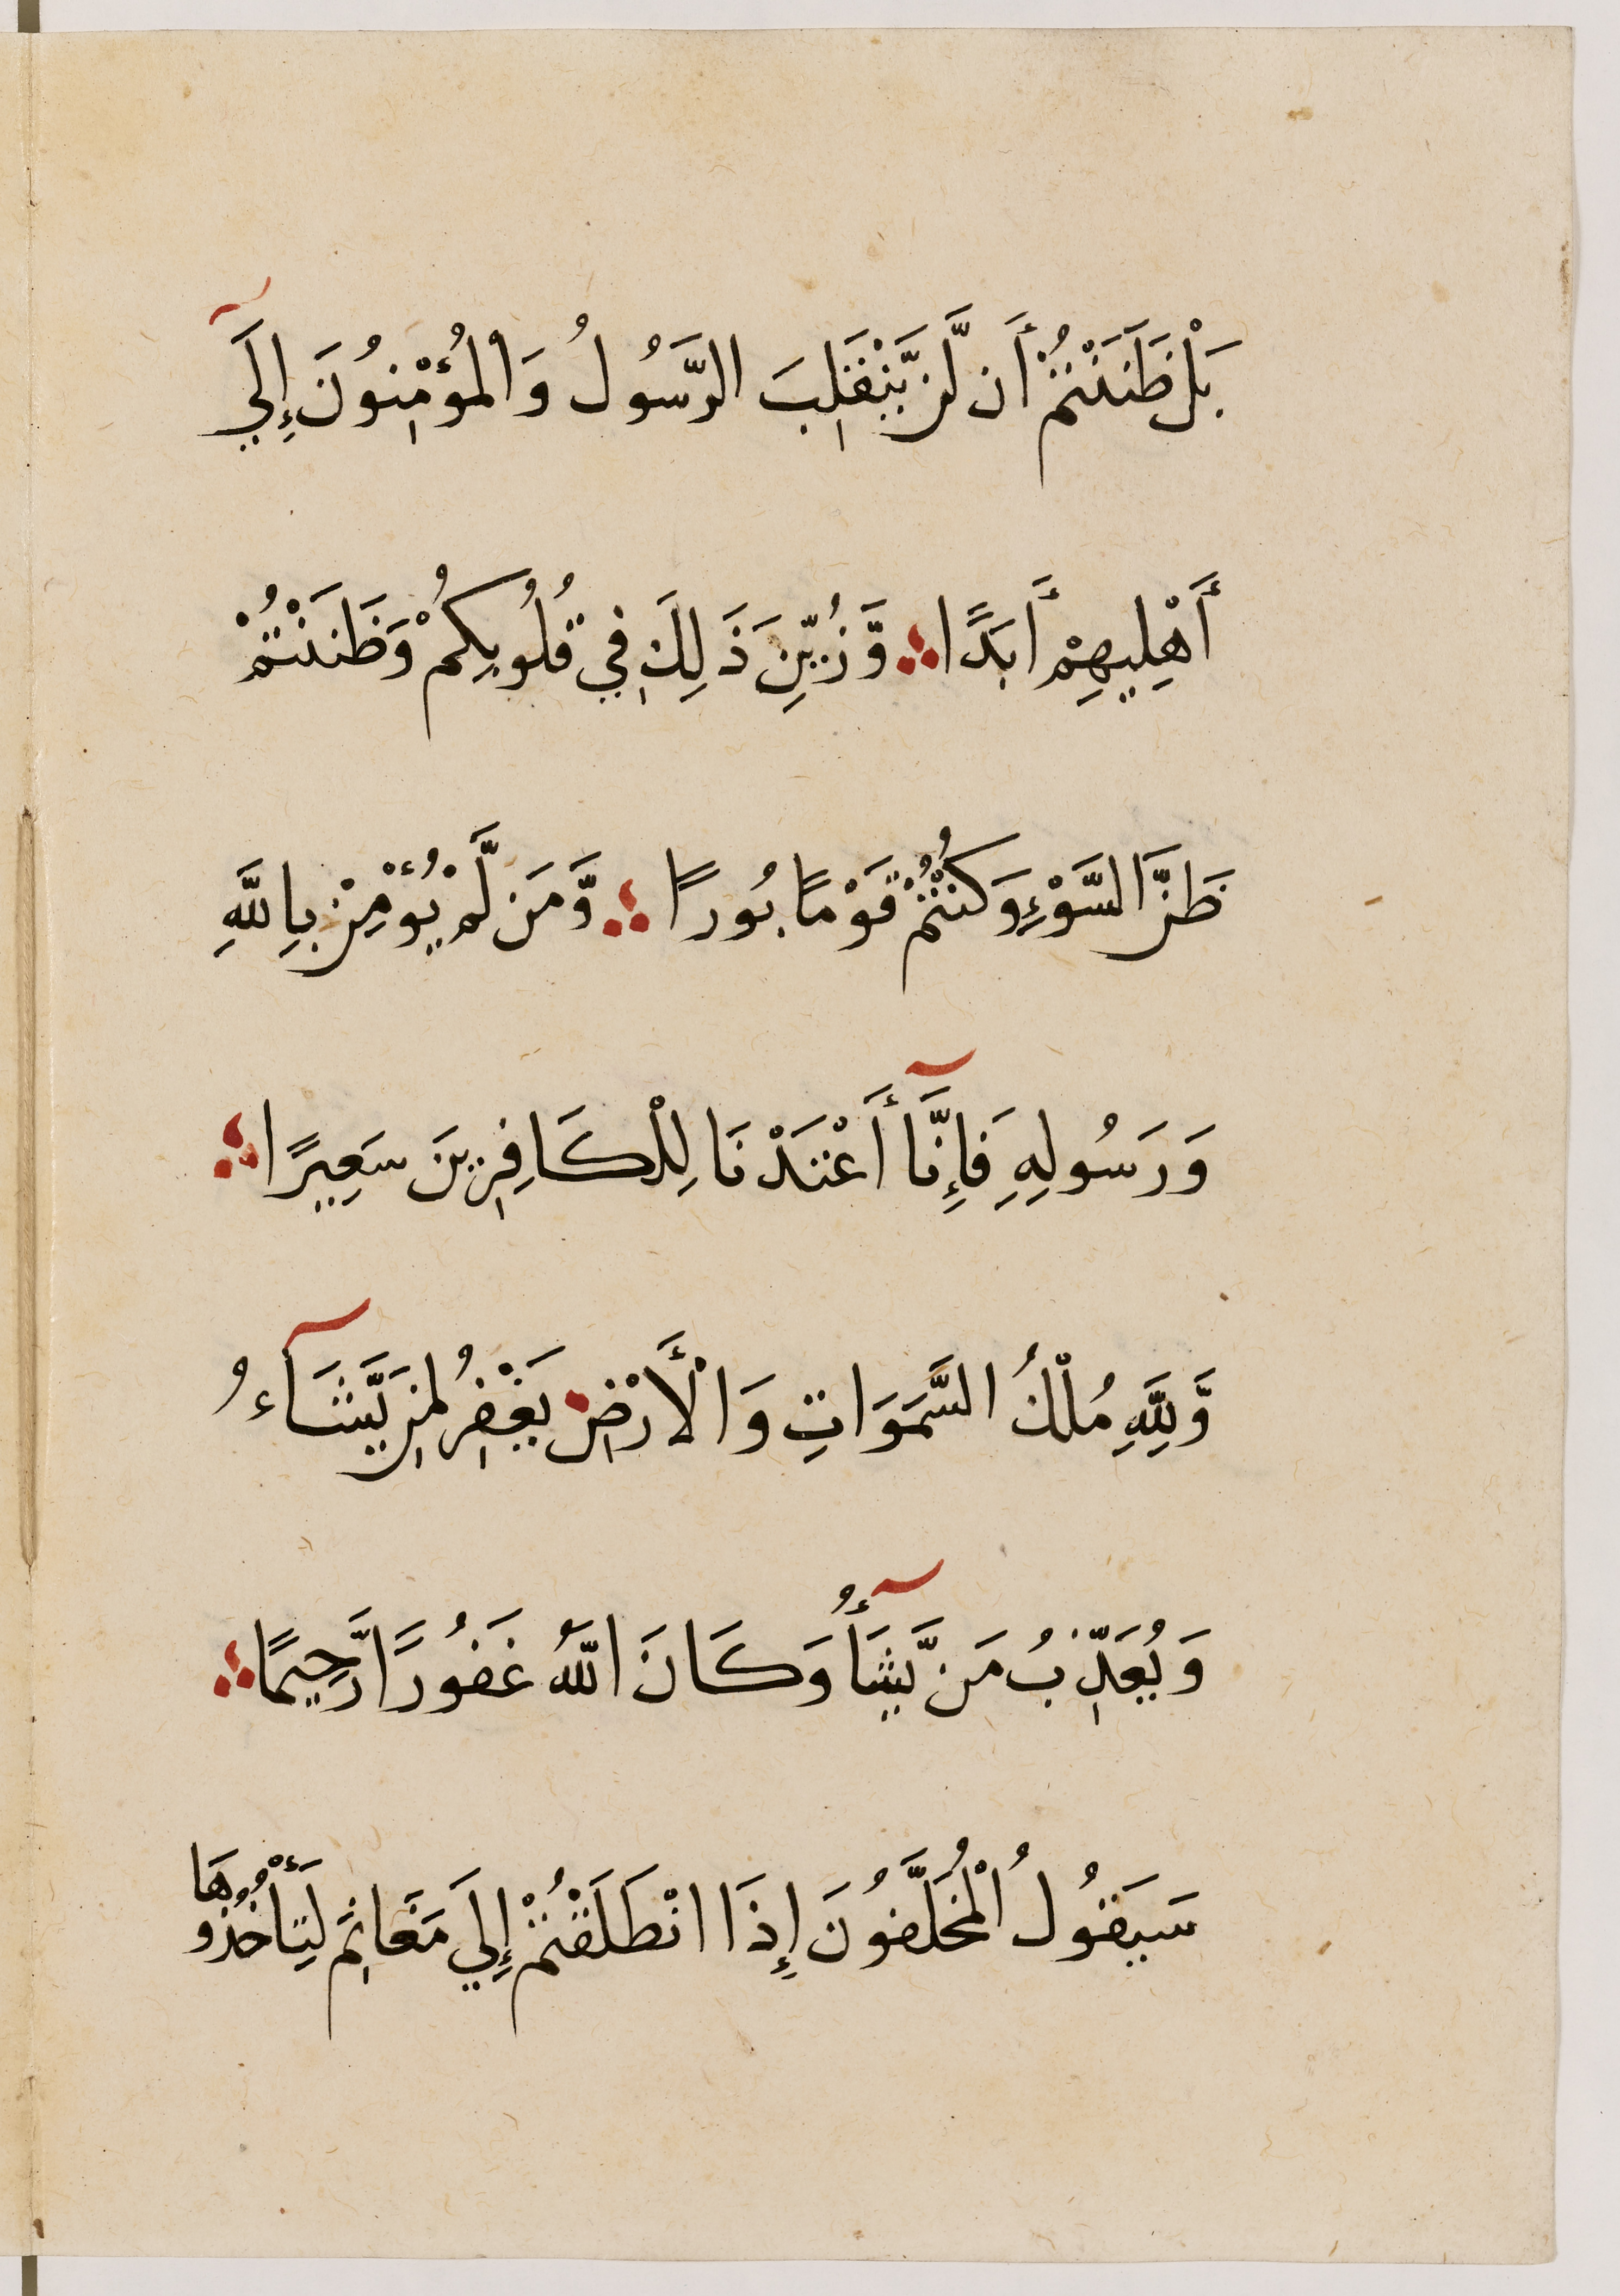 بَلْ ظَنَنْتُمْ أَن لَّن يَّنْقَلِبَ الرَّسُولُ وَالْمُؤْمِنُونَ إِلَيٓ
أَهْلِيهِمْ أَبَدًا ؞ وَّزُيِّنَ ذَلِكَ فِي قُلُوبِكُمْ وَظَنَنْتُمْ
ظَنَّ السَّوْءِ وَكُنْتُمْ قَوْمًا بُورًا ؞ وَّمَن لَّمْ يُؤْمِنْ بِاللَّهِ
وَرَسُولِهِ فَإِنَّآ أَعْتَدْنَا لِلْكَافِرِينَ سَعِيرًا ؞
وَّلِلَّهِ مُلْكُ السَّمَوَاتِ وَالْأَرْضِ يَغْفِرُ لِمَن يَّشَآءُ
وَيُعَذِّبُ مَن يَّشَآأُ وَكَانَ اللَّهُ غَفُورًا رَّحِيمًا ؞
سَيَقُولُ الْمُخَلَّفُونَ إِذَا انْطَلَقْتُمْ إِلَي مَغَانِمَ لِتَأْخُذُوهَا